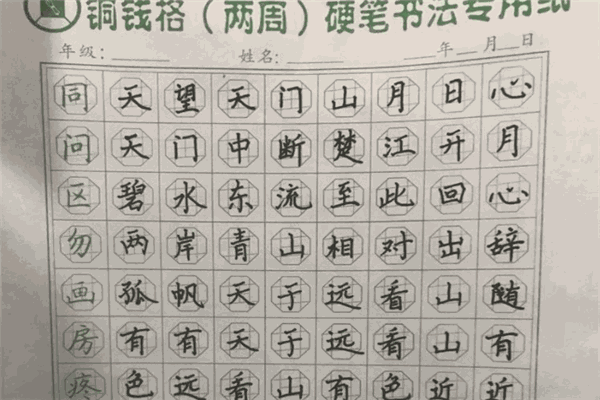 铜钱格（两周）硬笔书法专用纸
年级：______ 姓名：______ ___年__月__日
同天望天门山月日心
问天门中断楚江开月
区碧水东流至此回心
勿两岸青山相对出辞
画孤帆天于远看山随
房有有天于远看山有
疼色远看山有色近近